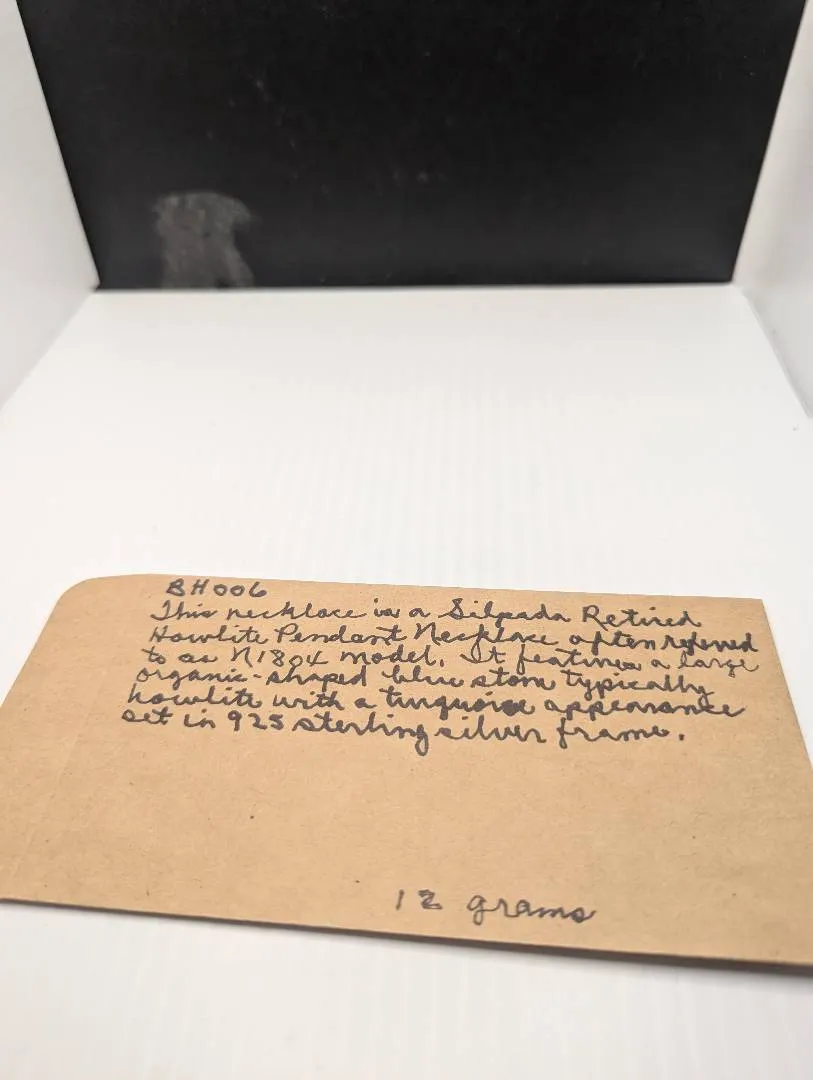 BH006
This necklace is a Silpada Retired
Howlite Pendant Necklace often referred
to as N1804 model. It features a large
organic-shaped blue stone typically
howlite with a turquoise appearance
set in 925 sterling silver frame.
12 grams